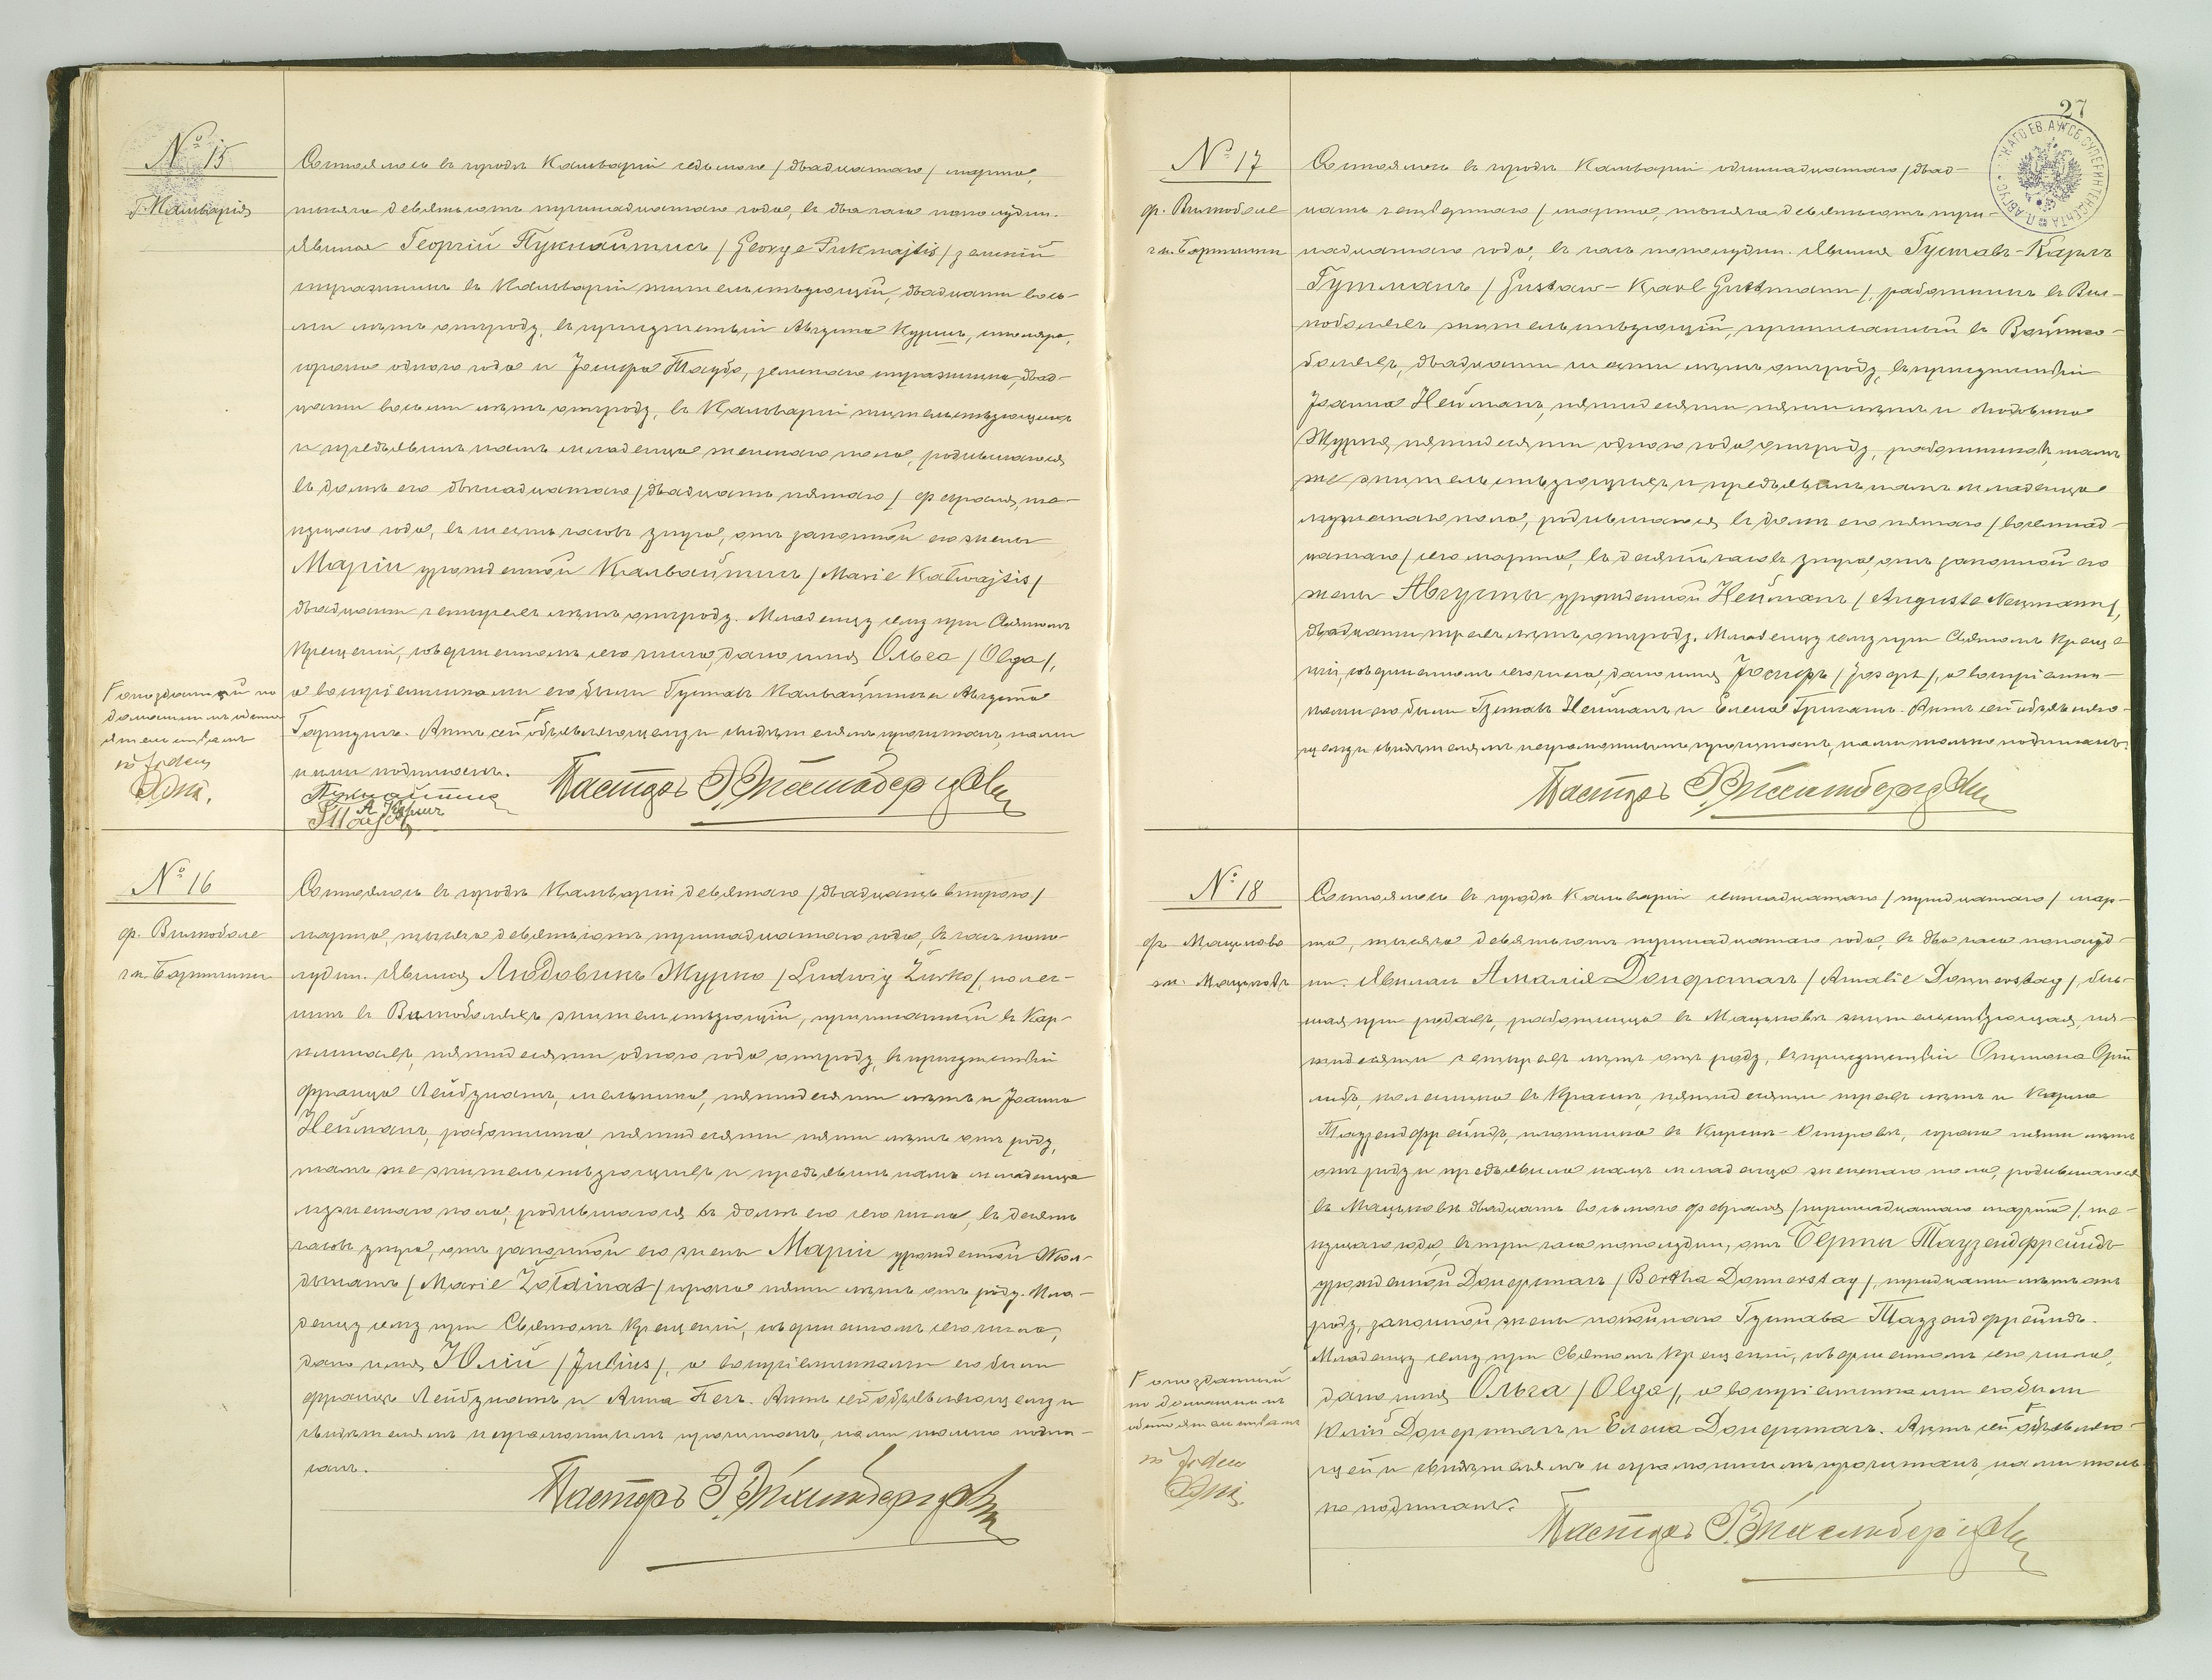 № 15
г. Кальварія
Состоялось въ городѣ Кальваріи седьмого /двадцатаго/ марта,
тысяча девятьсотъ тринадцатаго года, въ два часа пополудни.
Явился Георгій Пукнайтисъ /George Puknajtis/ земскій
стражникъ въ Кальваріи жительствующій, двадцати вось-
ми лѣтъ отъ роду, въ присутствіи Августа Куршъ, столяра,
сорока одного года и Іосифа Тауба, земскаго стражника, двад-
цати восьми лѣтъ отъ роду, въ Кальваріи жительствующихъ
и предъявилъ намъ младенца женскаго пола, родившагося
въ домѣ его двѣнадцатаго /двадцать пятаго/ февраля, те-
кущаго года, въ шесть часовъ утра, отъ законной его жены
Маріи урожденной Кальвайтисъ /Marie Kalwajtis/
двадцати четырехъ лѣтъ отъ роду. Младенцу сему при Святомъ
Крещеніи, совершенномъ сего числа, дано имя Ольга /Olga/,
а воспріемниками его были Густавъ Кальвайтисъ и Августа
Актъ сей объявляющему и свидѣтелямъ прочитанъ, нами
и ими подписанъ.
Г опозданный по
домашнимъ обсто-
ятельствамъ
Пукнайтисъ
А Куршъ
Таубъ
Пасторъ
№ 16
ф. Вилкоболе
гм. Бартники
Состоялось въ городѣ Кальваріи девятаго /двадцать второго/
марта, тысяча девятьсотъ тринадцатаго года, въ часъ попо-
лудни. Явился Людовикъ Журко /Ludwig Żurko/, колес-
никъ въ Вилкоболяхъ жительствующій, приписанный въ Кар-
пятидесяти одного года отъ роду, въ присутствіи
Франца Лейбунатъ, мельника, пятидесяти лѣтъ и Іоанна
Нейманъ, работника, пятидесяти пяти лѣтъ отъ роду,
тамъ же жительствующихъ и предъявилъ намъ младенца
мужескаго пола, родившагося въ домѣ его сего числа, въ девять
часовъ утра, отъ законной его жены Маріи урожденной Жол-
динатъ /Marie Żołdinat/ сорока пяти лѣтъ отъ роду. Мла-
денцу сему при Святомъ Крещеніи, совершенномъ сего числа,
дано имя Юлій /Julius/, а воспріемниками его были
Францъ Лейбунатъ и Анна Актъ сей объявляющему и
свидѣтелямъ неграмотнымъ прочитанъ, нами только подпи-
санъ.
Пасторъ
27
№ 17
ф. Вилкоболе
гм. Бартники
Состоялось въ городѣ Кальваріи одиннадцатаго /двад-
цать четвертаго/ марта, тысяча девятьсотъ три-
надцатаго года, въ часъ пополудни. Явился Густавъ-Карлъ
Гутманъ /Gustaw-Karl Guttmann/, работникъ въ Вил-
коболяхъ жительствующій, приписанный въ
двадцати шести лѣтъ отъ роду, въ присутствіи
Іоанна Нейманъ, пятидесяти пяти лѣтъ и Людовика
Журко, пятидесяти одного года отъ роду, работниковъ, тамъ
же жительствующихъ и предъявилъ намъ младенца
мужескаго пола, родившагося въ домѣ его пятаго /восемнад-
цатаго/ сего марта, въ десять часовъ утра, отъ законной его
жены Августы урожденной Нейманъ /Auguste Neumann/,
двадцати трехъ лѣтъ отъ роду. Младенцу сему при Святомъ Креще-
ніи, совершенномъ сего числа, дано имя Іосифъ /Josept/, а воспріемни-
ками его были Густавъ Нейманъ и Елена Актъ сей объявляю-
щему и свидѣтелямъ неграмотнымъ прочитанъ, нами только подписанъ.
Пасторъ
№ 18
ф. Мацьково
гм. Мацьково
Состоялось въ городѣ Кальваріи семнадцатаго /тридцатаго/ мар-
та, тысяча девятьсотъ тринадцатаго года, въ два часа пополуд-
ни. Явилась Амалія Донерштагъ /Amalie Donnerstag/, быв-
шая при родахъ, работница въ Мацьковѣ жительствующая, пя-
тидесяти четырехъ лѣтъ отъ роду, въ присутствіи
пятидесяти трехъ лѣтъ и Карла
Таузендфрейндъ, плотника въ сорока пяти лѣтъ
отъ роду и предъявила намъ младенца женскаго пола, родившагося
въ Мацьковѣ двадцать восьмого февраля /тринадцатаго марта/, те-
кущаго года, въ три часа пополудни, отъ Берты Таузендфрейндъ
урожденной Донерштагъ /Bertha Donnerstag/, тридцати лѣтъ отъ
роду, законной жены покойнаго Густава Таузендфрейндъ.
Младенцу сему при Святомъ Крещеніи, совершенномъ сего числа,
дано имя Ольга /Olga/, а воспріемниками его были
Юлій Донерштагъ и Елена Донерштагъ. Актъ сей объявляю-
щей и свидѣтелямъ неграмотнымъ прочитанъ, нами толь-
ко подписанъ.
Г опозданный
по домашнимъ
обстоятельствамъ
Пасторъ